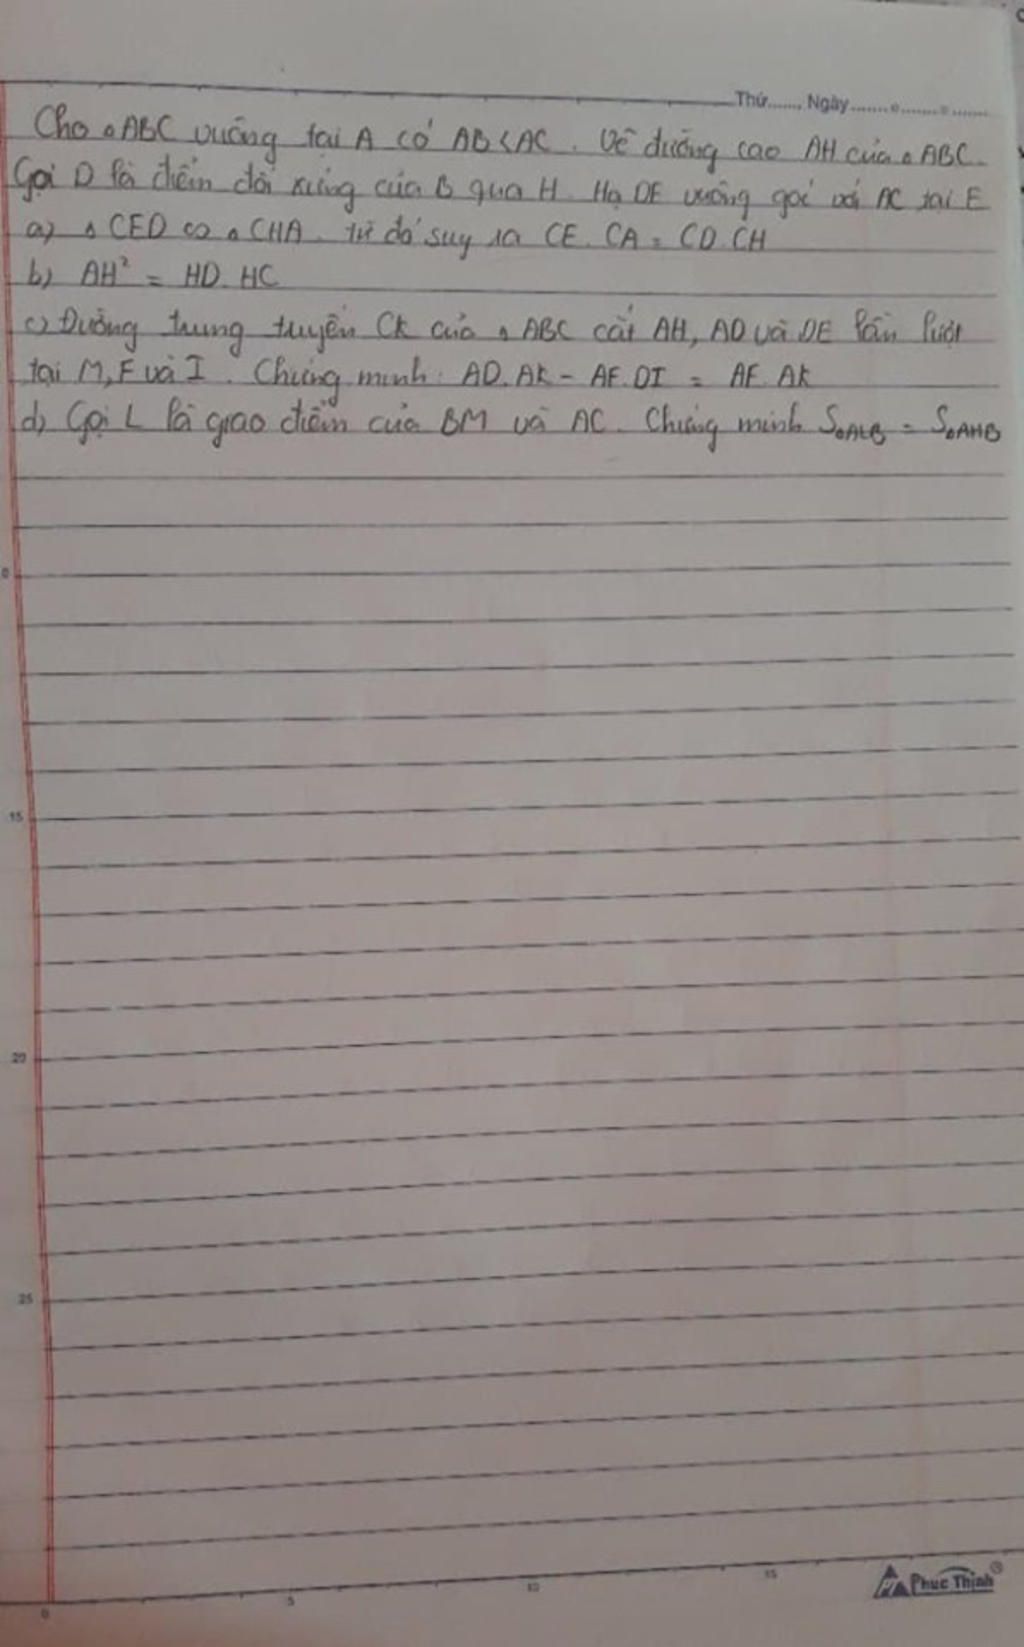 Thứ......, Ngày.......o.......o.......
Cho △ABC vuông tại A có AB<AC. Vẽ đường cao AH của △ABC.
Gọi D là điểm đối xứng của B qua H. Hạ DE vuông góc với AC tại E
a) △CED ∽ △CHA. từ đó suy ra CE.CA = CD.CH
b) AH² = HD.HC
c) Đường trung tuyến CK của △ABC cắt AH, AD và DE lần lượt
tại M, F và I. Chứng minh: AD.AK - AF.DI = AF.AK
d) Gọi L là giao điểm của BM và AC. Chứng minh S△ALB = S△AHB
15
20
25
0
5
10
15
Phuc Thinh